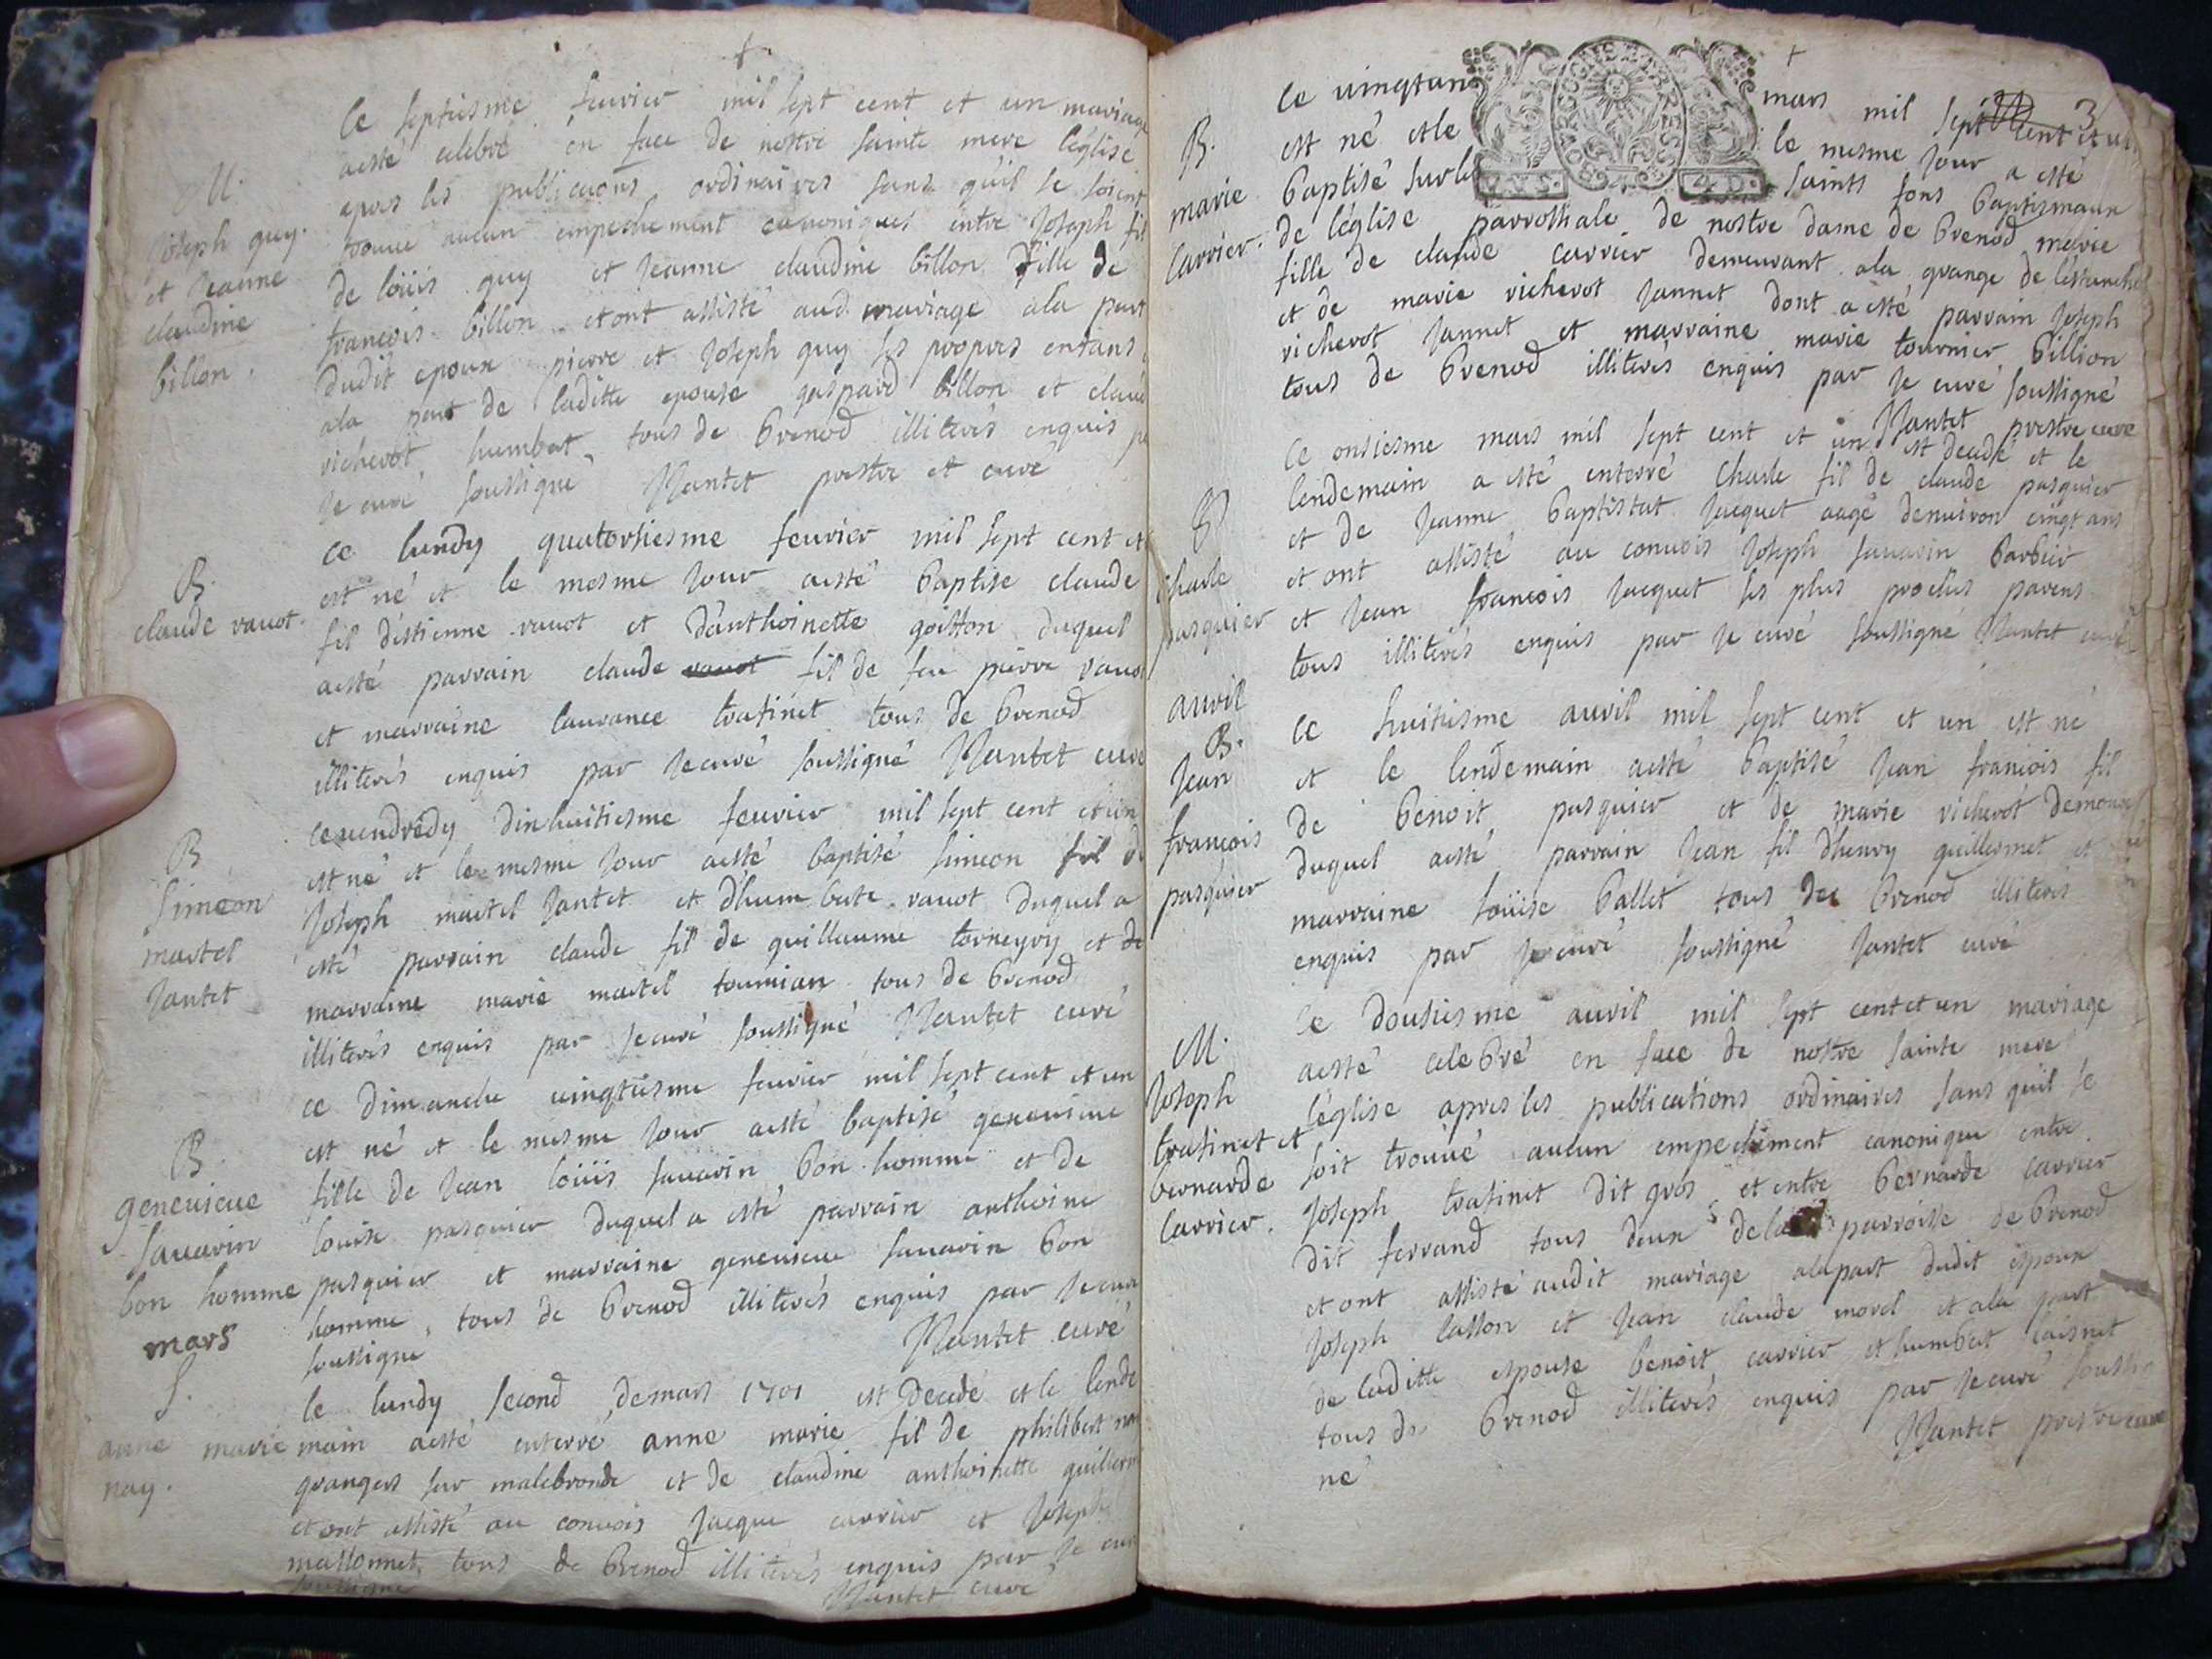 M.
Joseph guy.
et Jeanne
claudine
billon.
Ce septiesme feurier mil sept cent et un mariage
a esté celebré en face de nostre sainte mere l'église
apres les publications ordinaires sans qu'il se soient
trouué aucun empechement canoniques entre Joseph fil
de loüis guy et Jeanne claudine billon fille de
francois billon et ont assisté aud mariage a la part
dudit epoux pierre et Joseph guy ses propres enfans
a la part de laditte epouse gaspard billon et claude
richerot humbert tous de brenod illiterés enquis
Je curé soussigné Jantet prestre et curé
B.
claude rauot.
ce lundy quatorsiesme feurier mil sept cent et
est né et le mesme Jour a esté baptise claude
fil d'estienne rauot et d'anthoinette goisson duquel
a esté parrain claude rauot fil de feu pierre rauot
et marraine laurance trasinet tous de brenod
illiterés enquis par Je curé soussigné Jantet curé
B
Simeon
martel
Jantet
ce uendredy dixhuitiesme feurier mil sept cent et un
est né et le mesme Jour a esté baptisé simeon fil de
Joseph martel Jantet et d'humberte rauot duquel a
esté parrain claude fil de guillaume torneyry et de
marraine marie martel tournian tous de brenod
illiterés enquis par Je curé soussigné Jantet curé
B.
geneuieue
sauarin
bon homme
ce dimanche uingtiesme feurier mil sept cent et un
est né et le mesme Jour a esté baptisé geneuieue
fille de Jean loüis sauarin bon homme et de
louise pasquier duquel a esté parrain anthoine
pasquier et marraine geneuieue sauarin bon
homme, tous de brenod illiterés enquis par Je curé
soussigne Jantet curé
mars
S.
anne marie
nay.
le lundy second de mars 1701 est decedé et le lende
main a esté enterré anne marie fil de philibert nay
grangers sur malebronde et de claudine anthoinette guillerm
et ont assisté au conuois Jacque carrier et Joseph
massonnet tous de brenod illiterés enquis par Je curé
soussigné Jantet curé
3
B.
marie
Carrier.
Ce uingtun mars mil sept cent et un
est né et le le mesme Jour a esté
baptisé sur les saints fons baptismaux
de l'église parrossiale de nostre dame de brenod marie
fille de claude carrier demeurant a la grange de l'estanche
et de marie richerot Jannet dont a esté parrain Joseph
richerot Jannet et marraine marie tournier billion
tous de brenod illiterés enquis par Je curé soussigné
Jantet prestre curé
S
charle
pasquier
Ce onsiesme mars mil sept cent et un est decedé et le
lendemain a esté enterré Charle fil de claude pasquier
et de Jeanne baptistat Jacquet aagé denuiron cinqt ans
et ont assisté au conuois Joseph sauarin barbier
et Jean francois Jacquet ses plus proches parens
tous illiterés enquis par Je curé soussigné Jantet curé
auril
B.
Jean
francois
pasquier
Ce huitiesme auril mil sept cent et un est né
et le lendemain a esté baptisé Jean francois fil
de benoit pasquier et de marie richerot
duquel a esté parrain Jean fil d'henry guillermet et
marraine loüise ballet tous de brenod illiterés
enquis par Je curé soussigné Jantet curé
M.
Joseph
trasinet et
bernarde
Carrier.
Ce dousiesme auril mil sept cent et un mariage
a esté celebré en face de nostre sainte mere
l'église apres les publications ordinaires sans qu'il se
soit trouué aucun empechement canonique entre
Joseph trasinet dit gros et entre bernarde carrier
dit ferrand tous deux de la parroisse de brenod
et ont assisté audit mariage a la part dudit epoux
Joseph lasson et Jean claude morel et a la part
de laditte epouse benoit carrier et humbert
tous de brenod illiterés enquis par Je curé soussig
né Jantet prestre curé